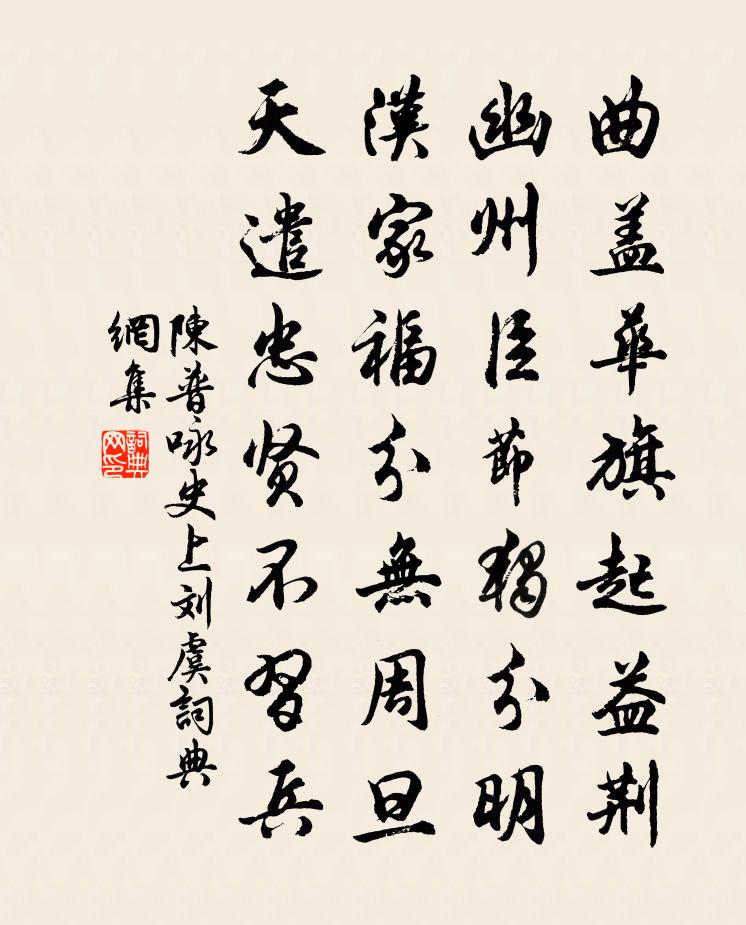 曲盖华旗起益荆
幽州臣節獨分明
漢家福分無周旦
天遣忠贤不習兵
陳普咏史上刘虞詞典
網集
詞典網印